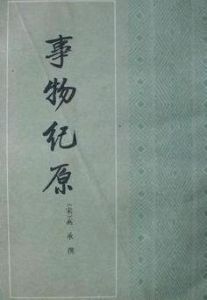 事物纪原
〔宋〕高承 撰